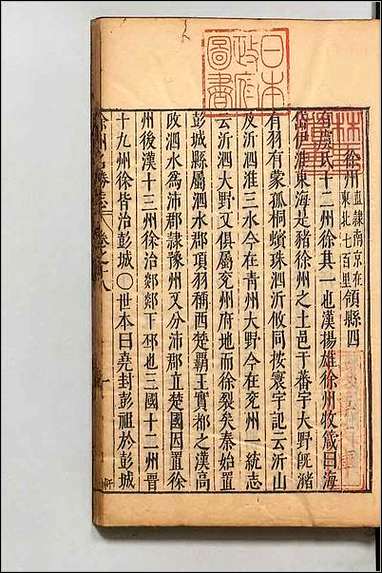 日本
政府
圖書
徐州直隸南京在東北七百里領縣四
有虞氏十二州徐其一也漢揚雄徐州牧箴曰海
岱伊淮東海是豬徐州之土邑于蕃宇大野旣瀦
有羽有蒙孤桐蠙珠泗沂攸同按寰宇記云沂山
及沂泗淮三水今在青州大野今在兗州一統志
云沂泗大野又俱屬兗州府地而徐裂矣秦始置
彭城縣屬泗水郡項羽稱西楚霸王實都之漢高
改泗水爲沛郡隸豫州又分沛郡立楚國因置徐
州後漢十三州徐治郯下邳也三國十二州晉
十九州徐皆治彭城〇世本曰堯封彭祖於彭城
徐州名勝志 卷之十八